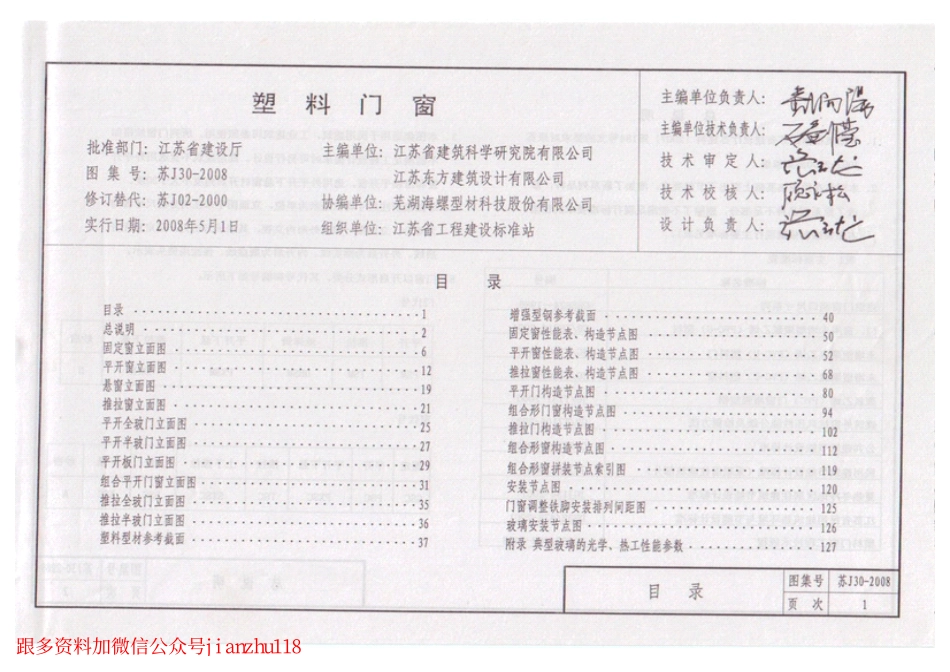 塑料门窗
批准部门：江苏省建设厅
图集号：苏J30-2008
修订替代：苏J02-2000
实行日期：2008年5月1日
主编单位：江苏省建筑科学研究院有限公司
江苏东方建筑设计有限公司
协编单位：芜湖海螺型材科技股份有限公司
组织单位：江苏省工程建设标准站
主编单位负责人：
主编单位技术负责人：
技术审定人：
技术校核人：
设计负责人：
目录
目录 1
总说明 2
固定窗立面图 6
平开窗立面图 12
悬窗立面图 19
推拉窗立面图 21
平开全玻门立面图 25
平开半玻门立面图 27
平开板门立面图 29
组合平开门窗立面图 31
推拉全玻门立面图 35
推拉半玻门立面图 36
塑料型材参考截面 37
增强型钢参考截面 40
固定窗性能表、构造节点图 50
平开窗性能表、构造节点图 52
推拉窗性能表、构造节点图 68
平开门构造节点图 80
组合形门窗构造节点图 94
推拉门构造节点图 102
组合形窗构造节点图 112
组合形窗拼装节点索引图 119
安装节点图 120
门窗调整铁脚安装排列间距图 125
玻璃安装节点图 126
附录 典型玻璃的光学、热工性能参数 127
目录
图集号 苏J30-2008
页次 1
跟多资料加微信公众号jianzhu118